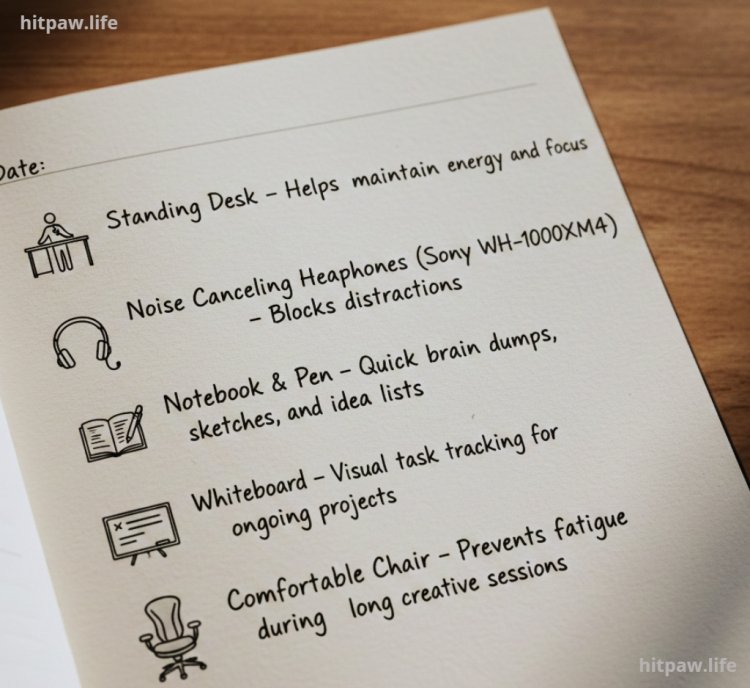 hitpaw.life
Date:
Standing Desk – Helps maintain energy and focus
Noise Canceling Heaphones (Sony WH-1000XM4)
– Blocks distractions
Notebook & Pen – Quick brain dumps,
sketches, and idea lists
Whiteboard – Visual task tracking for
ongoing projects
Comfortable Chair – Prevents fatigue
during long creative sessions
hitpaw.life